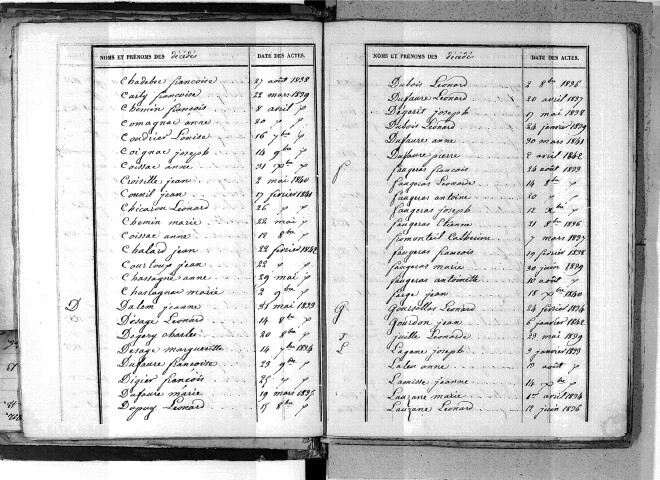 NOMS ET PRÉNOMS DES décédés DATE DES ACTES.
Chadebec françoise 27 août 1838
Carty françoise 22 mars 1839
Chemin françois 8 avril p
Comagnac anne 20 p p
Coudrier Louise 16 7bre p
Coignac joseph 14 9bre p
Coissac anne 31 Xbre p
Croizille jean 2 mai 1840
Counil jean 17 février 1841
Chicaron Léonard 26 p p
Chemin marie 22 mai p
Coissac anne 12 8bre p
Chalard jean 22 février 1842
Courloup jean 22
Chassagne anne 29 mai p
Chastagnac marie 2 9bre p
D Dalem jeanne 31 mai 1833
Désage Léonard 14 8bre p
Degery charles 20 8bre p
Desage marguerite 14 7bre 1834
Dufaure françoise 29 9bre p
Digier françois 25 p p
Dufaure marie 19 mars 1835
Dupuy Léonard 15 8bre
NOMS ET PRÉNOMS DES décédés DATE DES ACTES.
Dubois Léonard 2 8bre 1836
Dufaure Léonard 20 avril 1837
Dégerit joseph 17 mai 1838
Dubois Léonard 24 janvier 1839
Dufaure anne 30 mars 1841
Dufaure pierre 2 avril 1842
f faugeras françois 26 août 1833
faugeras Léonarde 14 8bre p
faugeras antoine 20 p p
faugeras joseph 12 Xbre p
faugeras Etienne 21 8bre 1836
fromonteil Catherine 7 mars 1837
faugeras françois 19 février 1838
faugeras marie 30 juin 1839
faugeras antoinette 10 août p
farge jean 18 Xbre 1840
G Goursollas Léonard 24 février 1834
Gourdon jean 6 janvier 1842
J juille Léonarde 29 mai 1839
L Lagane joseph 9 janvier 1833
Laleu anne 19 août p
Lamisse jeanne 14 Xbre p
Lauzane marie 1er avril 1834
Lauzane Léonard 12 juin 1836